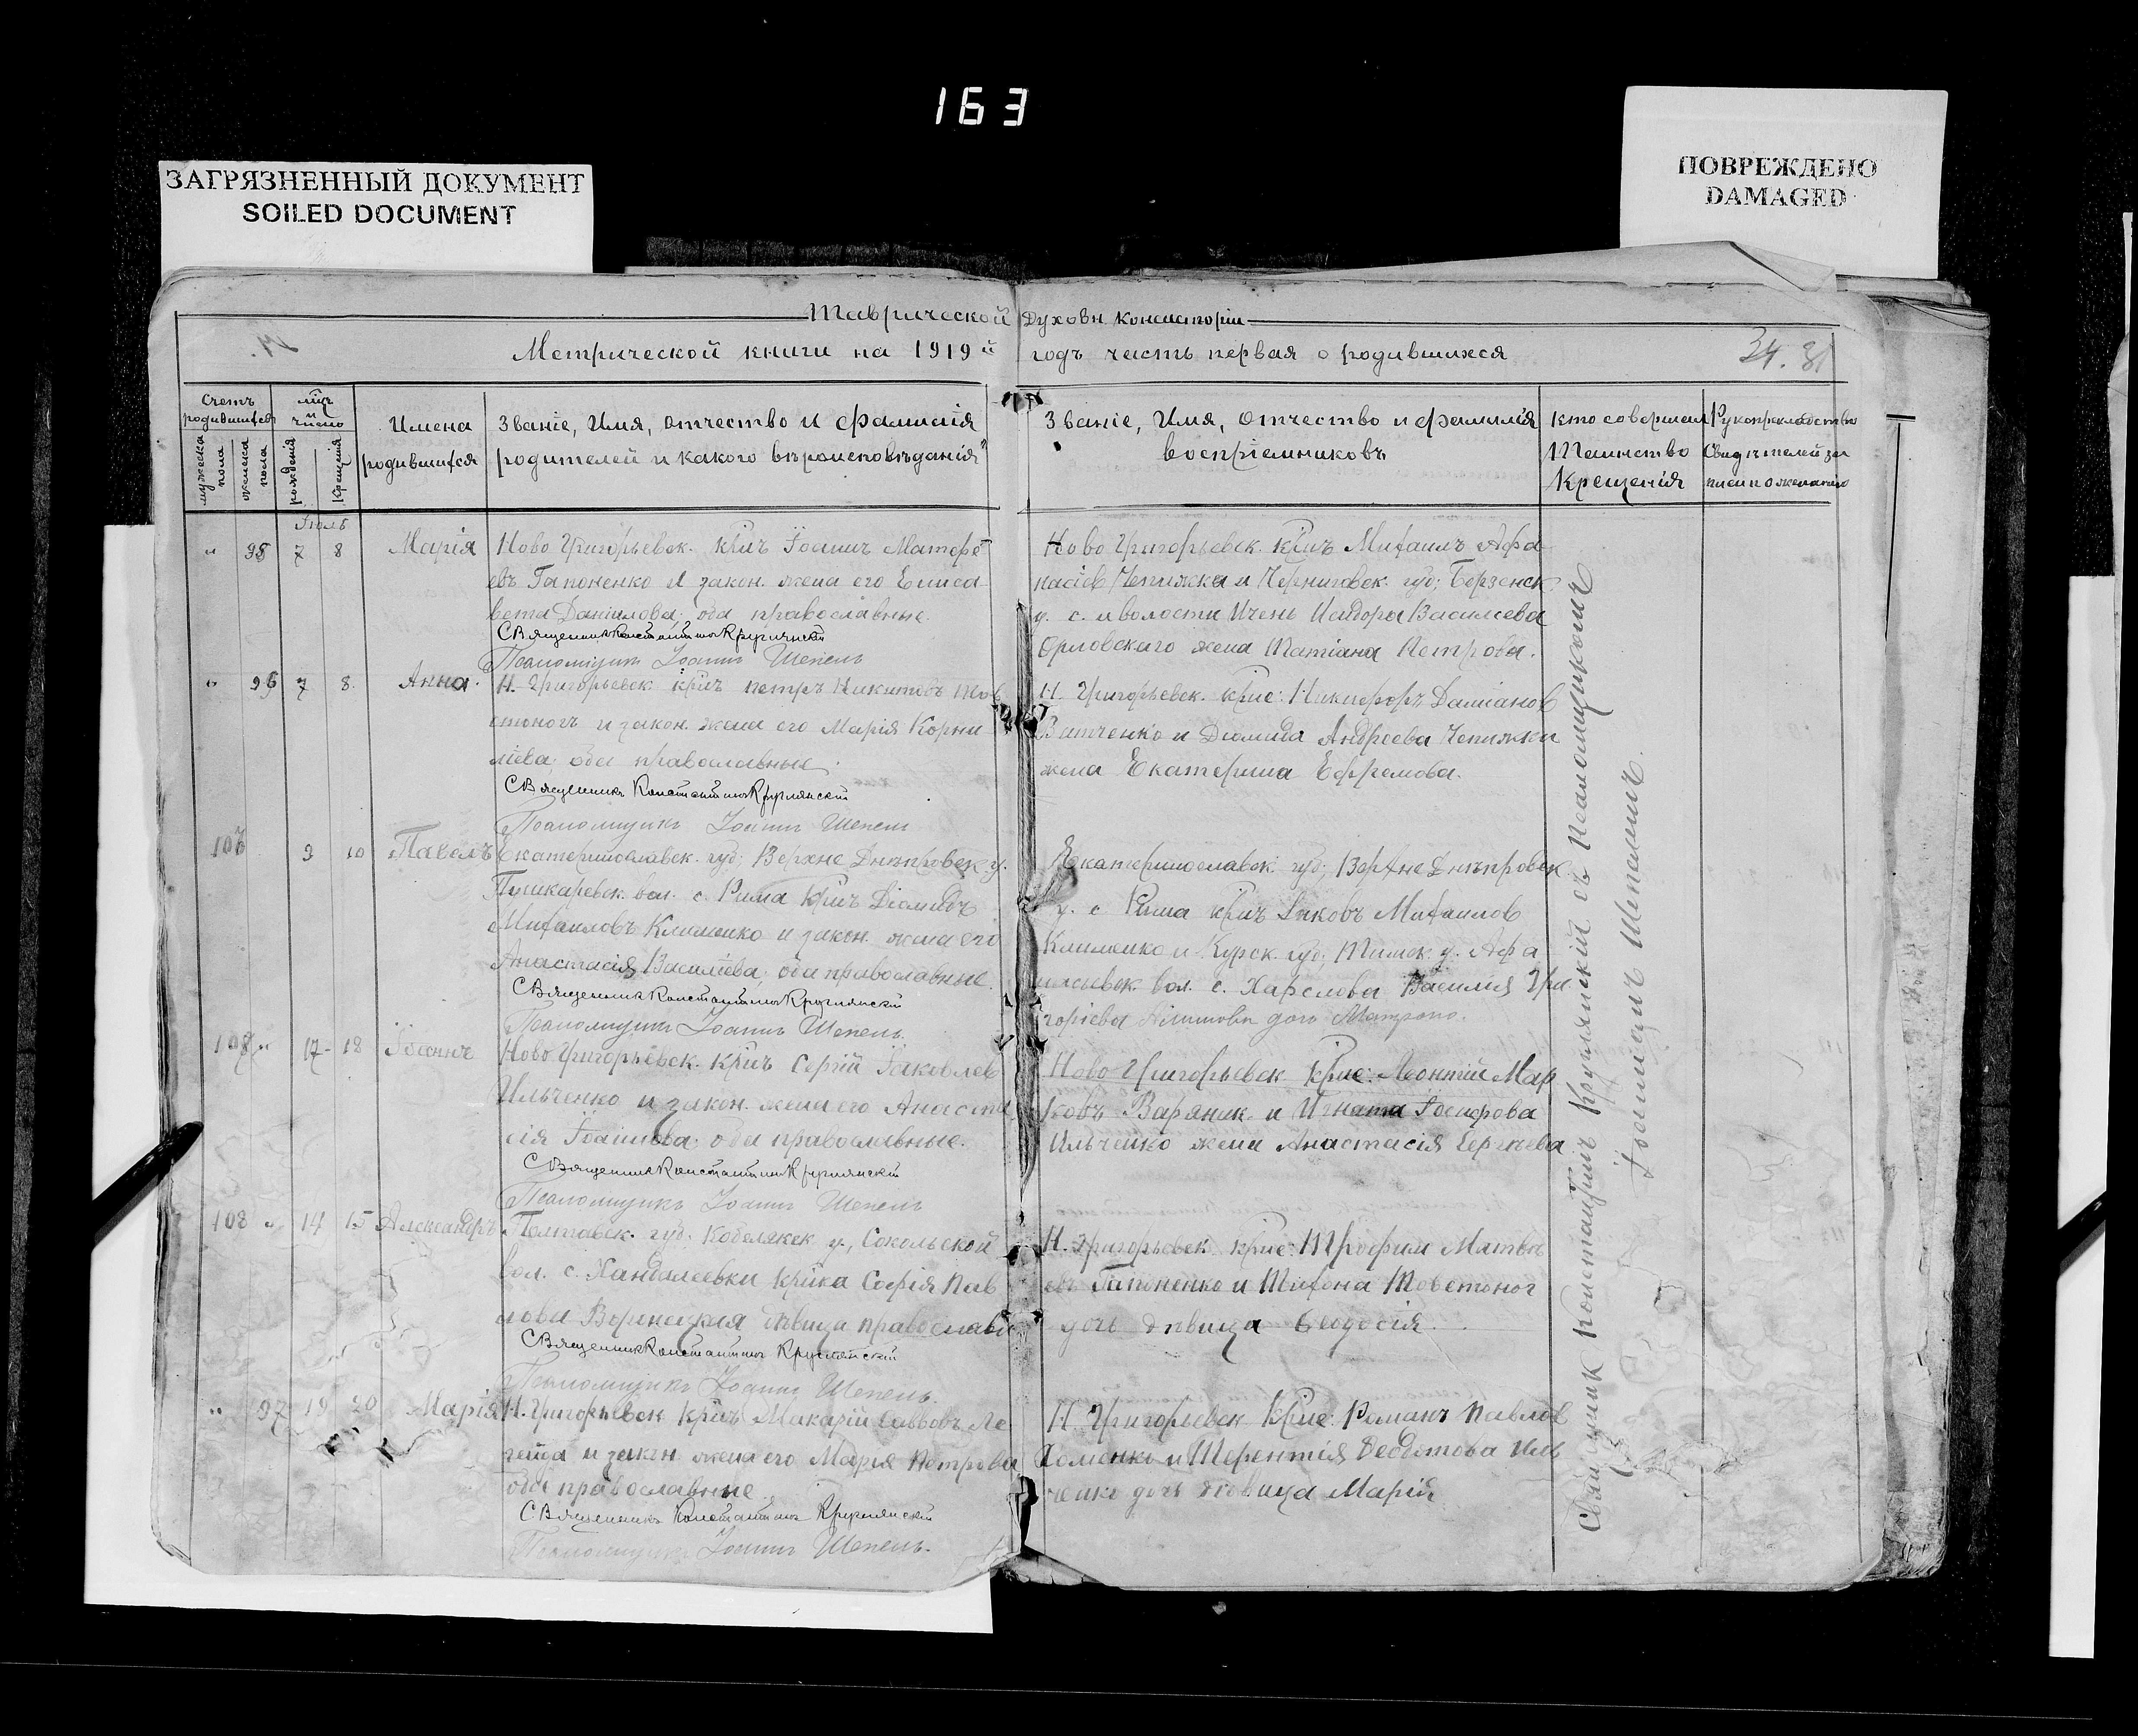 163
ЗАГРЯЗНЕННЫЙ ДОКУМЕНТ
SOILED DOCUMENT
ПОВРЕЖДЕНО
DAMAGED
Таврической Духовн. Консисторіи
Метрической книги на 1919й годъ часть первая о родившихся
34.
Счетъ родившихся
мужеска пола
женска пола
рожденія
крещенія
Имена родившихся
Званіе, Имя, отчество и фамилія
родителей и какого вѣроисповѣданія
Званіе, Имя, Отчество и фамилія
воспріемниковъ
кто совершал
Таинство
Крещенія
Рукоприкладство
Свидѣтелей за
писи по желанію
Іюль
" 95 7 8 Марія
Ново Григорьевск. кр͠нъ Іоаннъ Матѳе
евъ Гапоненко и закон. жена его Елиса
вета Даніилова, оба православные.
Священникъ Константинъ Круглянскій
Псаломщикъ Іоаннъ Шепель
Ново Григорьевск. кр͠нъ Михаилъ Афа
насіев Чепижка и Черниговск. губ; Борзенск
у. с. и волости Ичень Исидора Васильева
Орловскаго жена Татіана Петрова.
" 96 7 8. Анна.
Н. Григорьевск. кр͠нъ Петръ Никитовъ Тов
стоногъ и закон. жена его Марія Корни
ліева; оба православные.
Священникъ Константинъ Круглянскій
Псаломщикъ Іоаннъ Шепель
Н. Григорьевск. кр͠не: Никифоръ Даміанов
Витченко и Діомида Андреева Чепижки
жена Екатерина Ефремова.
10 Павелъ
Екатеринославск. губ; Верхне Днѣпровск у.
Пушкаревск. вол. с. Рима кр͠нъ Діомидъ
Михаиловъ Клименко и закон. жена его
Анастасія Василіева; оба православные.
Священникъ Константинъ Круглянскій
Псаломщикъ Іоаннъ Шепель.
Екатеринославск. губ; Верхне Днѣпровск.
у. с Рима кр͠нъ Яковъ Михаилов
Клименко и Курск. губ; Тимск. у. Афа
насьевск. вол. с. Василія Гри
горіева дочь
17- 18 Іоаннъ
Ново Григорьевск. кр͠нъ Сергій Іаковлев
Ильченко и закон. жена его Анаста
сія Іоаннова; оба православные.
Священникъ Константинъ Круглянскій
Псаломщикъ Іоаннъ Шепель
Ново Григорьевск кр͠не: Леонтій Мар
ковъ Вараник. и Игната Іосифова
Ильченко жена Анастасія Сергѣева
108 " 14 15 Александръ
Полтавск. губ. Кобелякск у., Сокольской
вол. с. Хандалеевки кр͠нка Софія Пав
лова дѣвица православн
Священникъ Константинъ Круглянскій
Псаломщикъ Іоаннъ Шепель.
Н. Григорьевск. кр͠не: Трофим Матвѣ
евъ Гапоненко и Тихона Товстоног
дочь дѣвица Ѳеодосія.
" 97 19 20 Марія
Н. Григорьевск кр͠нъ Макарій Саввовъ Ле
гейда и закон. жена его Марія Петрова
оба православные.
Священникъ Константинъ Круглянскій
Псаломщикъ Іоаннъ Шепель.
Н Григорьевск кр͠не: Романъ Павлов
Хоменко и Терентія Ѳеоктистова Иль
ченко дочь дѣвица Марія
Священник Константинъ Круглянскій съ псаломщикомъ
Іоанномъ Шепелемъ.